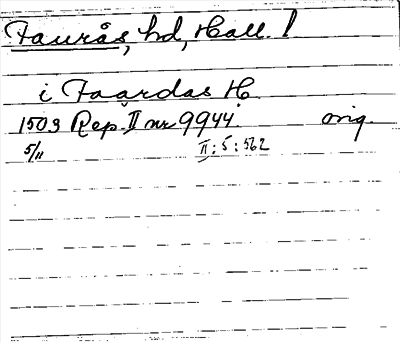 Faurås, hd, Hall. !
i Faardas H.
1503 Rep. II nr 9944. orig.
5/11 II:5:562